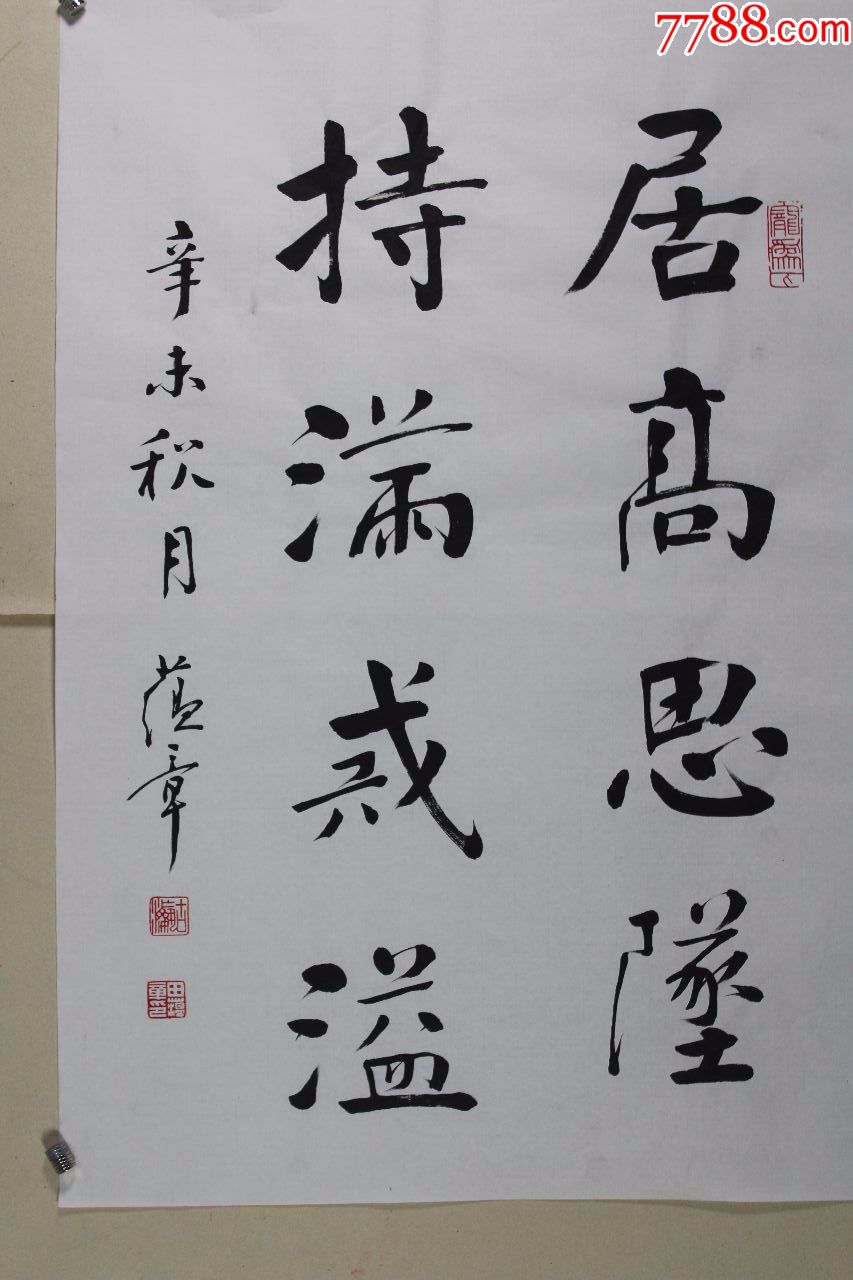 7788.com
居高思墜
持滿戒溢
辛未秋月 蕴章
田蕴章印